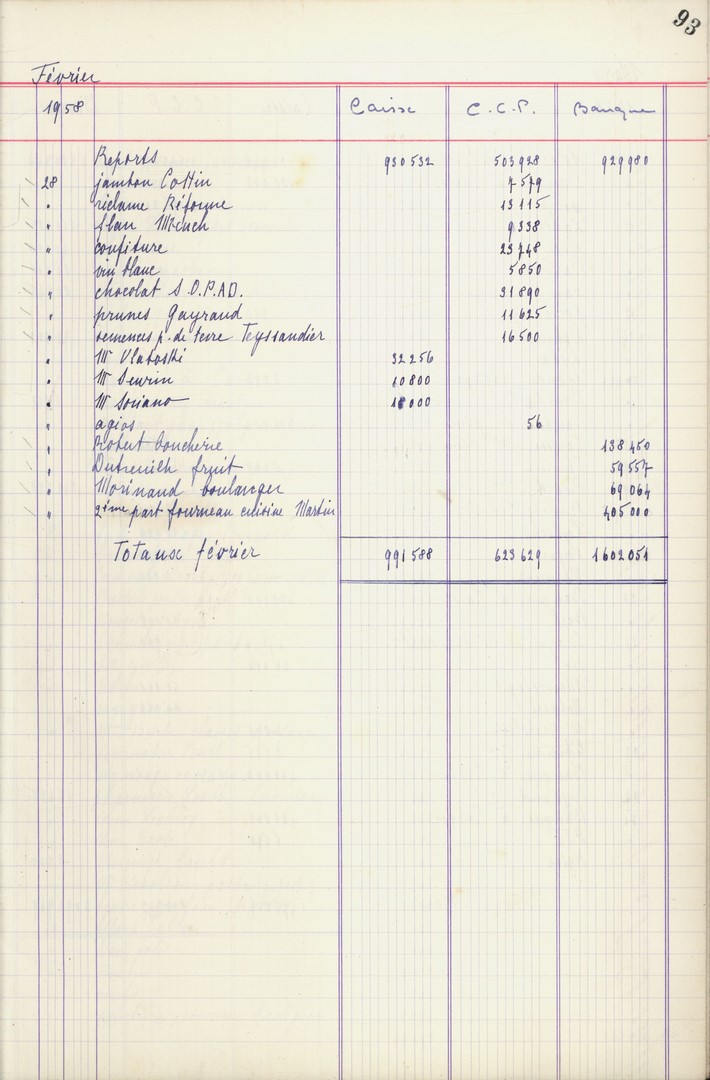 93
Février
1958 Caisse C.C.P. Banque
Reports 930 532 503 928 929 980
28 jambon Cottin 7 579
" réclame Réforme 13 115
" flan 9 338
" confiture 23 748
" vin blanc 5 850
" chocolat S.O.P.A.D. 31 890
" prunes Gayraud 11 625
" semences p. de terre Teyssandier 16 500
" Mr Vlaboski 32 256
" Mr Seurin 10 800
" Mr Soriano 18 000
" agios 56
" Robert boucherie 138 450
" Dutreuilh fruit 59 557
" Morinaud boulanger 69 064
" 2ème part fourneau cuisine Martin 405 000
Totaux février 991 588 623 629 1 602 051